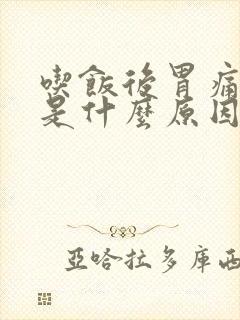 喫飯後胃痛
是什麼原因
亞哈拉多庫西